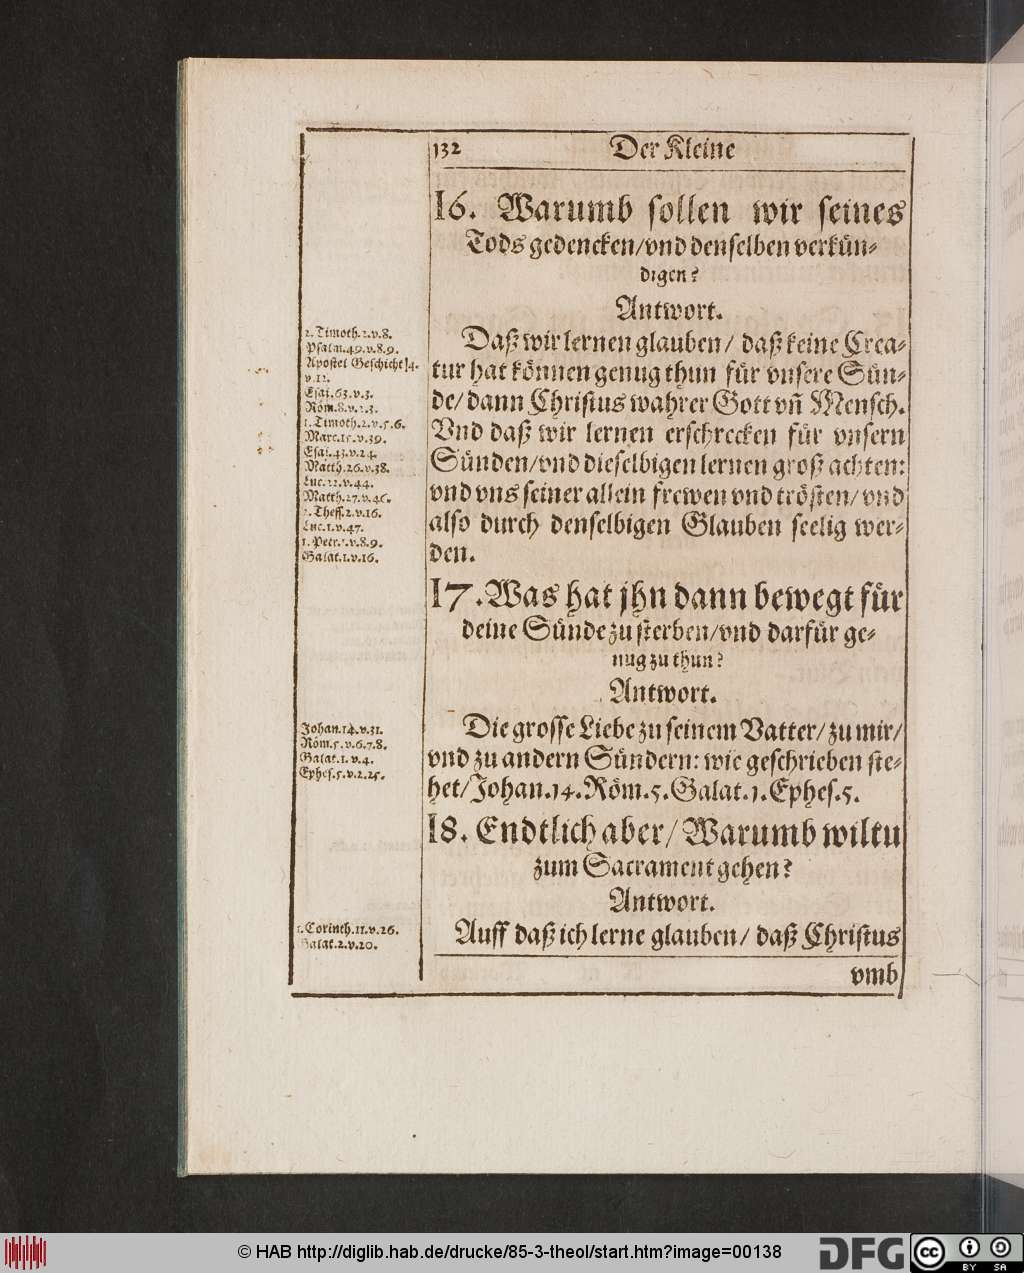 132 Der Kleine
16. Warumb sollen wir seines
Tods gedencken/vnd denselben verkün-
digen?
Antwort.
2. Timoth.2.v.8.
Psalm.49.v.8.9.
Apostel Geschicht 4.
v.12.
Esai.63.v.3.
Röm.8.v.2.3.
1. Timoth.2.v.5.6.
Marc.15.v.39.
Esai.43.v.24.
Matth.26.v.38.
Luc.22.v.44.
Matth.27.v.46.
2. Thess.2.v.16.
Luc.1.v.47.
1. Petr.1.v.8.9.
Galat.1.v.16.
Daß wir lernen glauben/ daß keine Crea-
tur hat können genug thun für vnsere Sün-
de/ dann Christus wahrer Gott vñ Mensch.
Vnd daß wir lernen erschrecken für vnsern
Sünden/vnd dieselbigen lernen groß achten:
vnd vns seiner allein frewen vnd trösten/ vnd
also durch denselbigen Glauben seelig wer-
den.
17. Was hat jhn dann bewegt für
deine Sünde zu sterben/vnd darfür ge-
nug zu thun?
Antwort.
Johan.14.v.31.
Röm.5.v.6.7.8.
Galat.1.v.4.
Ephes.5.v.2.25.
Die grosse Liebe zu seinem Vatter/ zu mir/
vnd zu andern Sündern: wie geschrieben ste-
het/Johan.14.Röm.5.Galat.1.Ephes.5.
18. Endtlich aber/ Warumb wiltu
zum Sacrament gehen?
Antwort.
1. Corinth.11.v.26.
Galat.2.v.20.
Auff daß ich lerne glauben/ daß Christus
vmb
© HAB http://diglib.hab.de/drucke/85-3-theol/start.htm?image=00138
DFG
cc BY SA